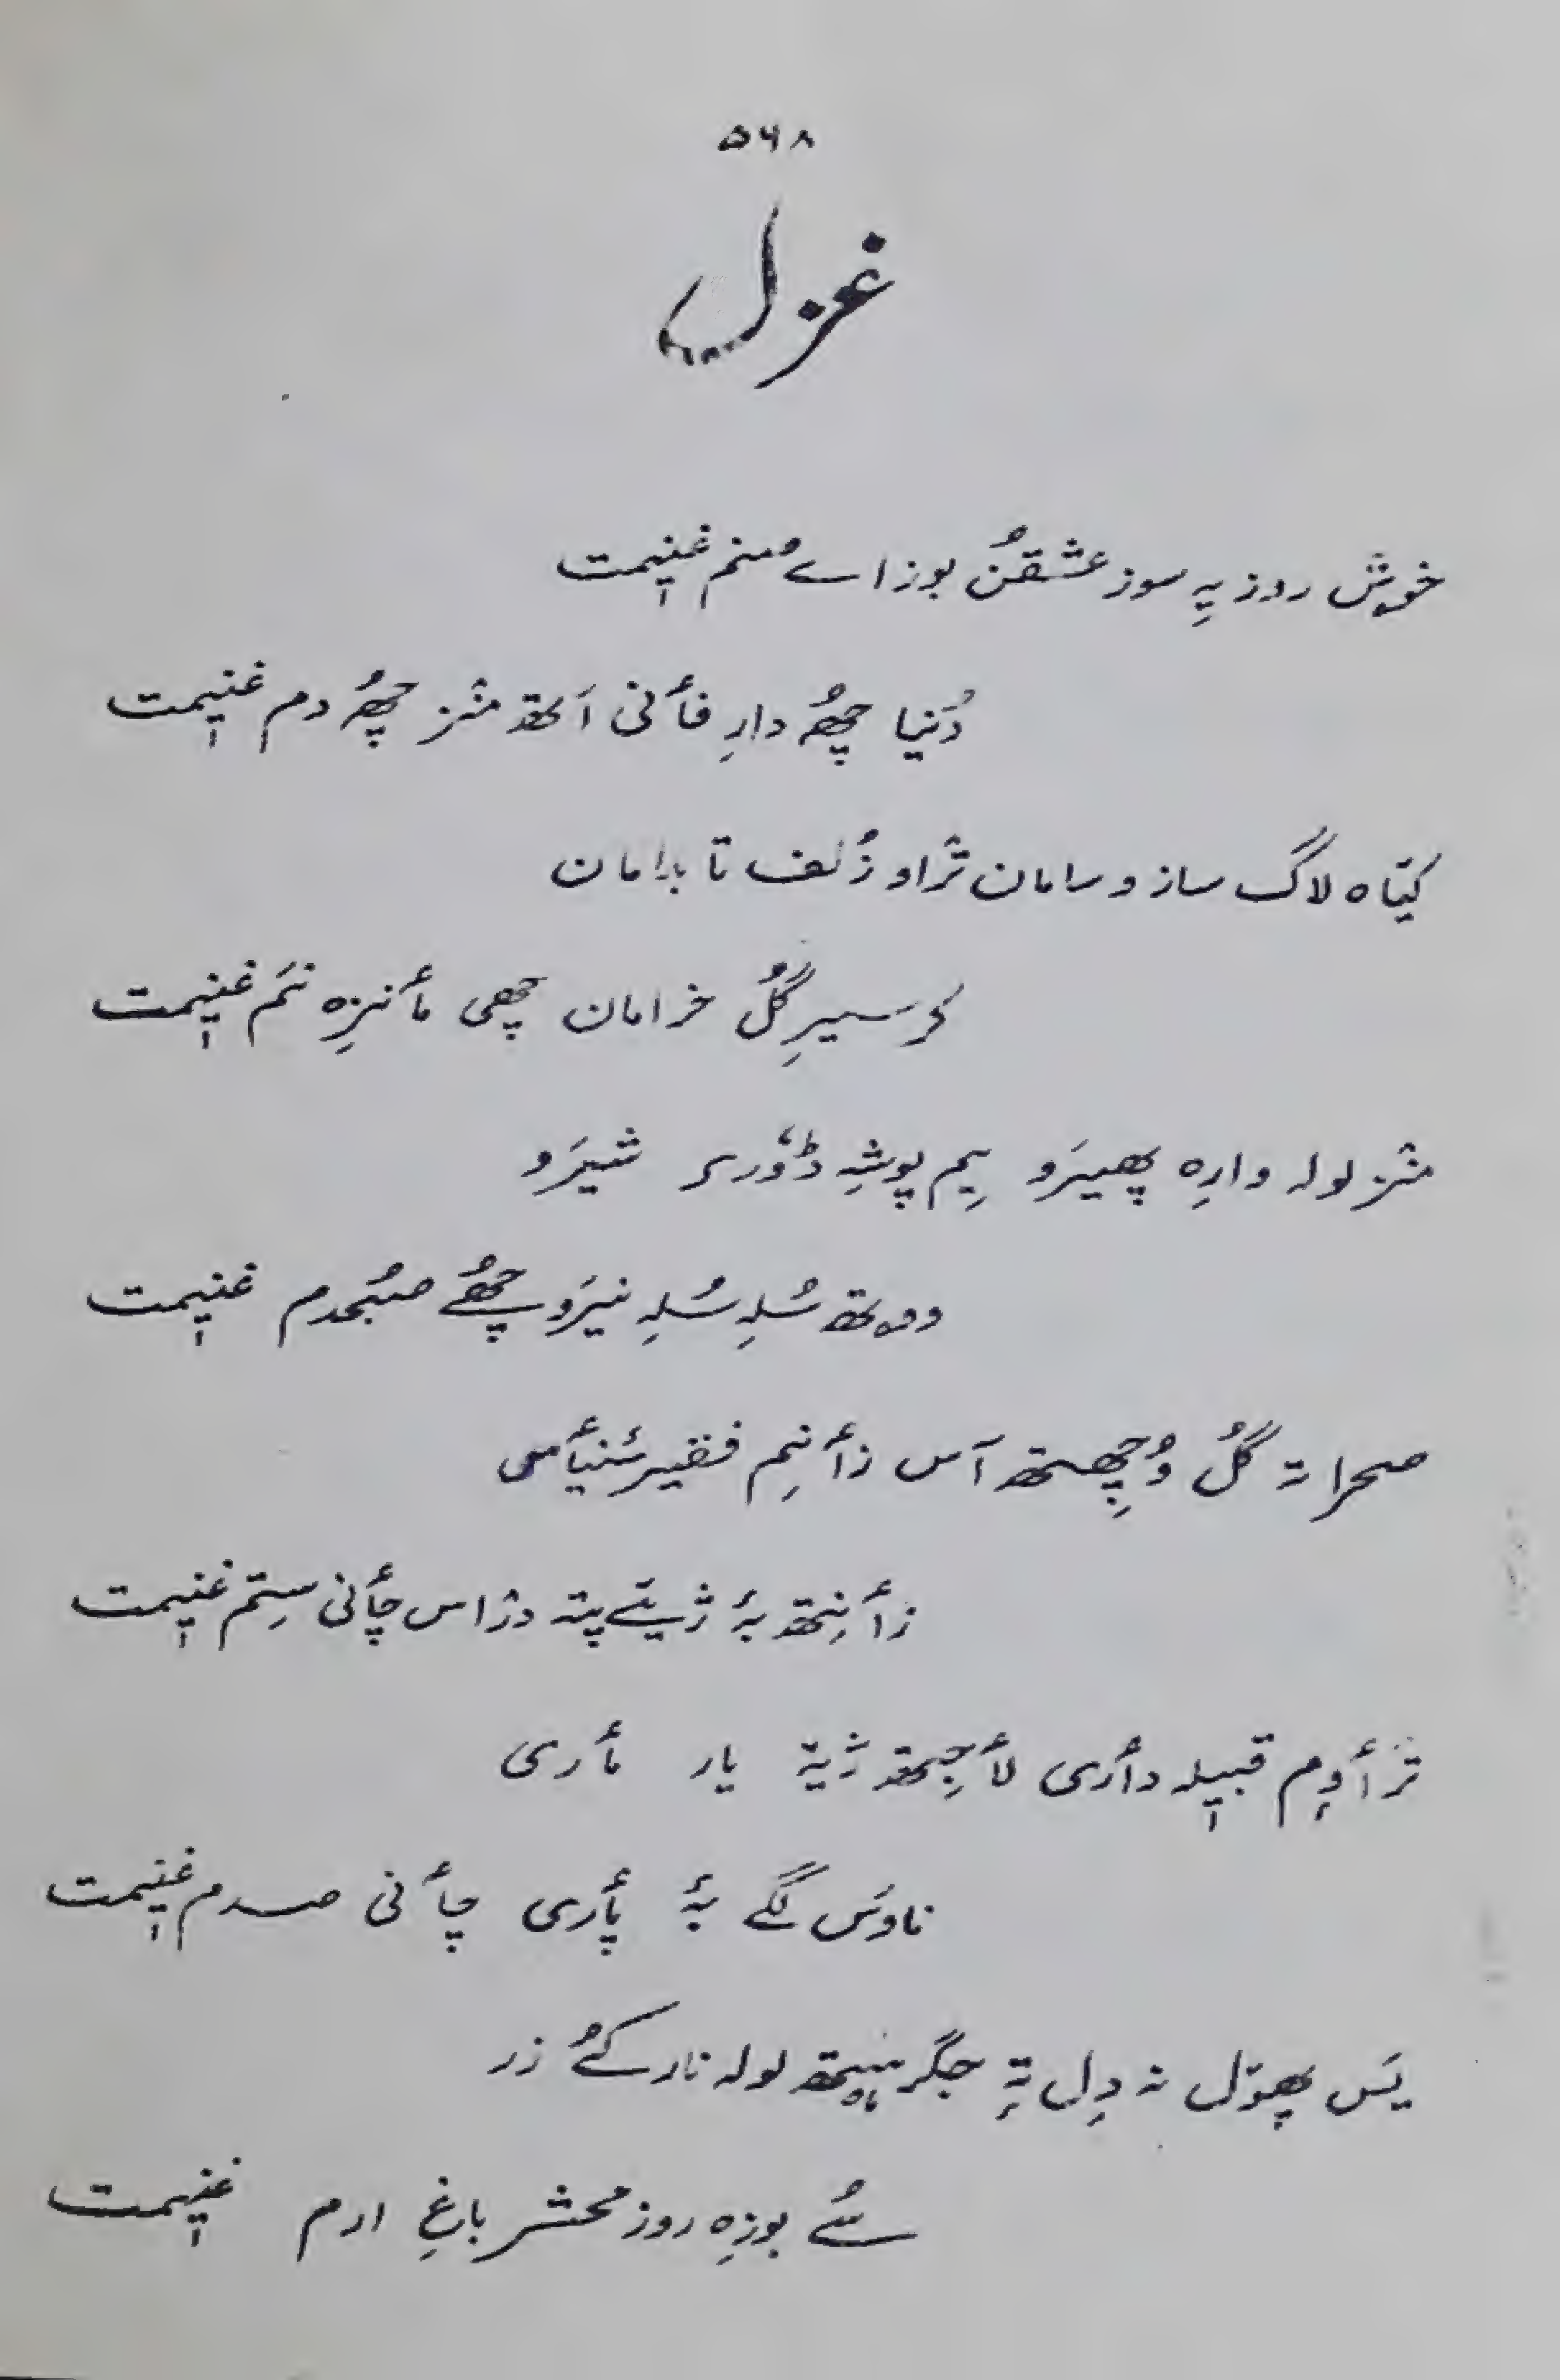 ۵۶۸
غزل
خوش روز پہِ سوز عشقُن بوز اے منم غنٖیمت
دُنیا چھُ دارِ فأنی اَتھ منٛز چھُ دم غنٖیمت
کیٛاہ لاگ ساز و سامان ترٛاو زُلف تا بدامان
کر سیرِ گُل خرامان چھی مأنزِہ نَم غنٖیمت
منٛز لولہ وارِہ پھیرَو یِم پوشِہ ڈۅری شیرَو
وۅتھ سُلہِ سُلہِ نیرَو چھُے صبُحدم غنٖیمت
صحرا تہ گُل وُچھِتھ آس زأنِم فقیر سٔنیأسی
زأنِتھ بۂ ژیےٚ پتہ دژاس چأنی سِتم غنٖیمت
ترٛأوِم قبیٖلہ دأری لأجِمتھ ژیہٚ یار مأری
ناوَس لگے بۂ پأری چأنی صدم غنٖیمت
یَس پھۅل نہ دِل تہِ جگر ہیٚتھ لولہ نار کُے زر
سُے بوزِہ روز محشر باغِ ارم غنٖیمت